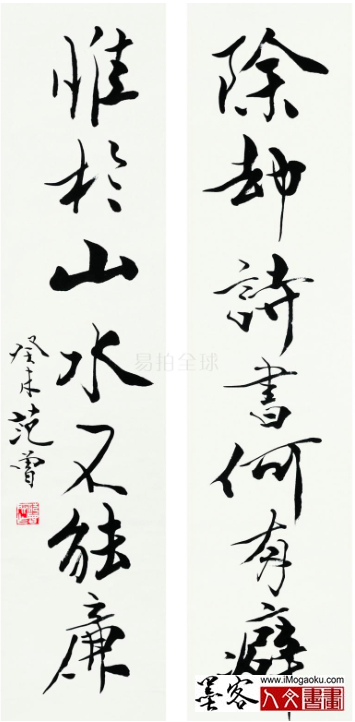 除却詩書何有癖
惟於山水不能廉
癸未范曾
易拍全球
墨客
www.iMogaoku.com
人文書畫